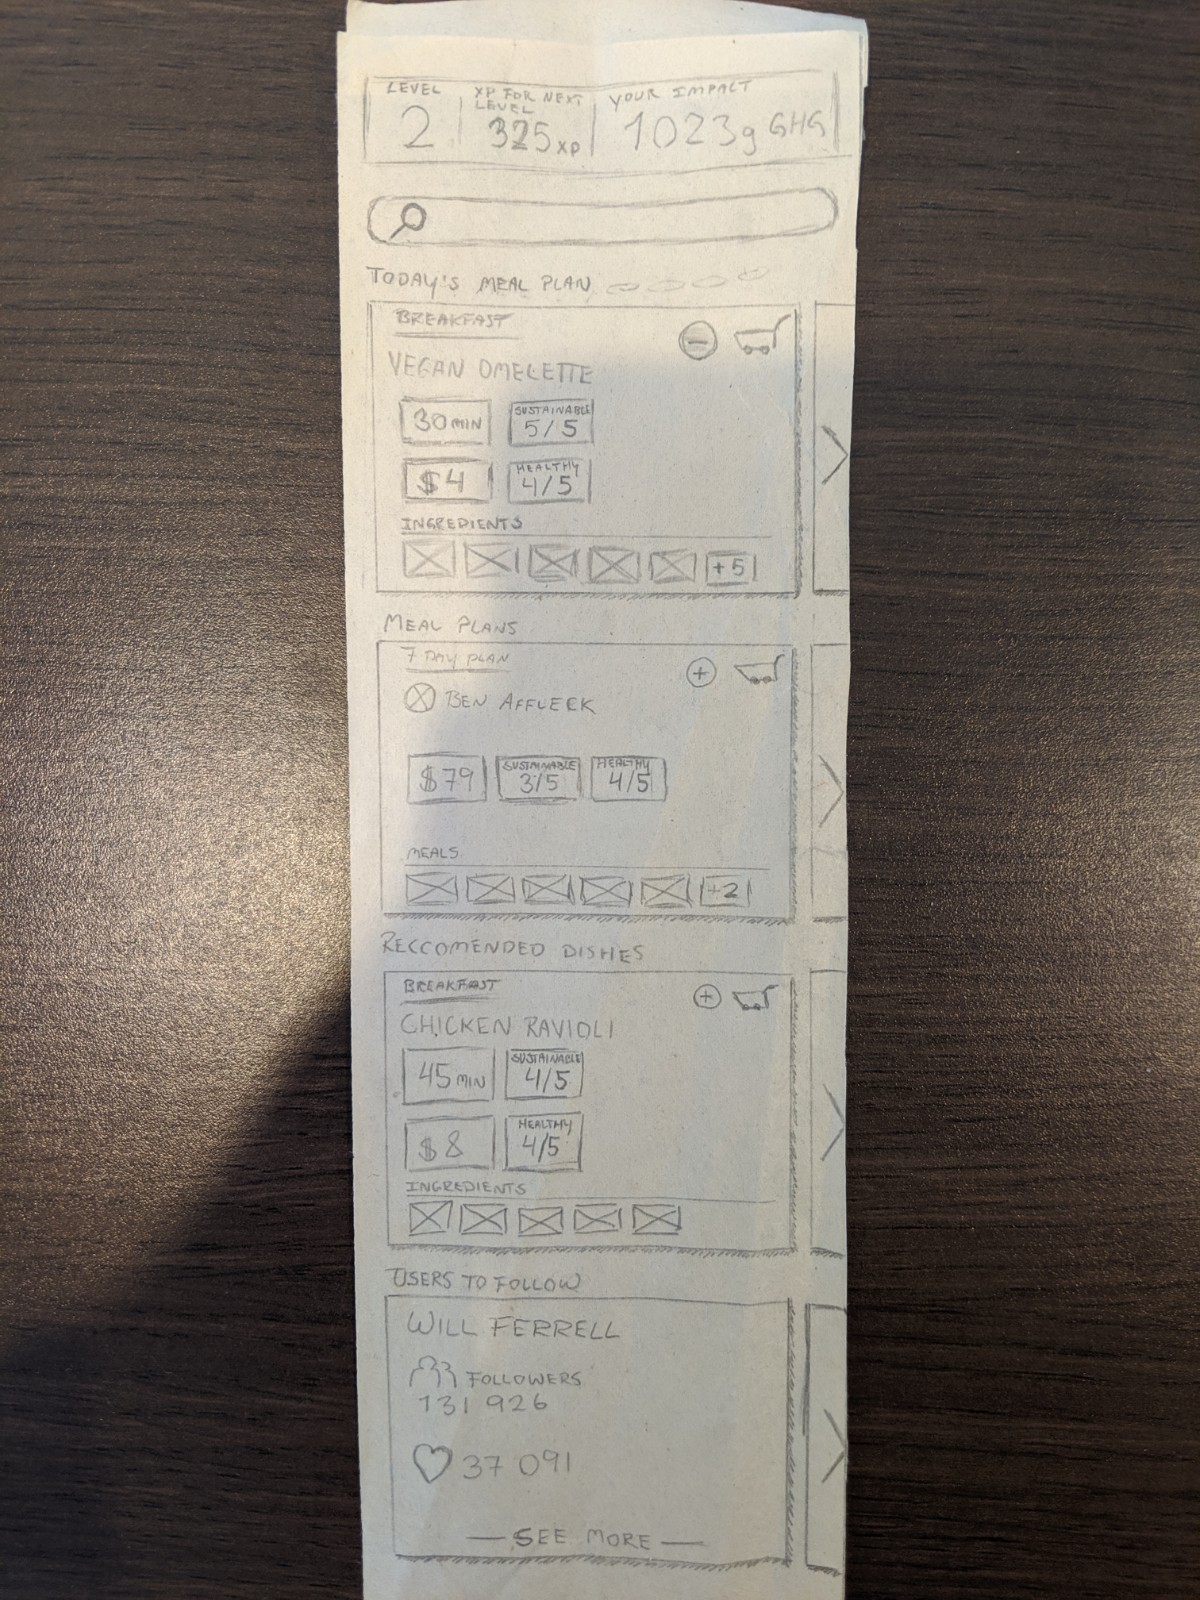 LEVEL
2
XP FOR NEXT
LEVEL
325 XP
YOUR IMPACT
1023g GHG
TODAY'S MEAL PLAN
BREAKFAST
VEGAN OMELETTE
30 MIN
SUSTAINABLE
5/5
$4
HEALTHY
4/5
INGREDIENTS
+5
MEAL PLANS
7 DAY PLAN
BEN AFFLECK
$79
SUSTAINABLE
3/5
HEALTHY
4/5
MEALS
+2
RECCOMENDED DISHES
BREAKFAST
CHICKEN RAVIOLI
45 MIN
SUSTAINABLE
4/5
$8
HEALTHY
4/5
INGREDIENTS
USERS TO FOLLOW
WILL FERRELL
FOLLOWERS
131 926
37 091
— SEE MORE —